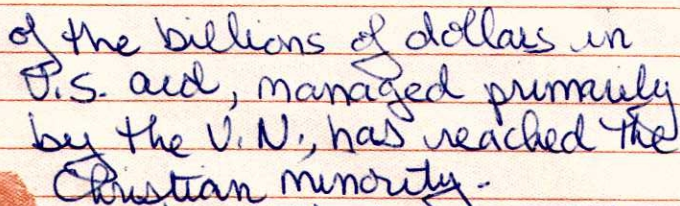 of the billions of dollars in
U.S. aid, managed primarily
by the U.N., has reached the
Christian minority.